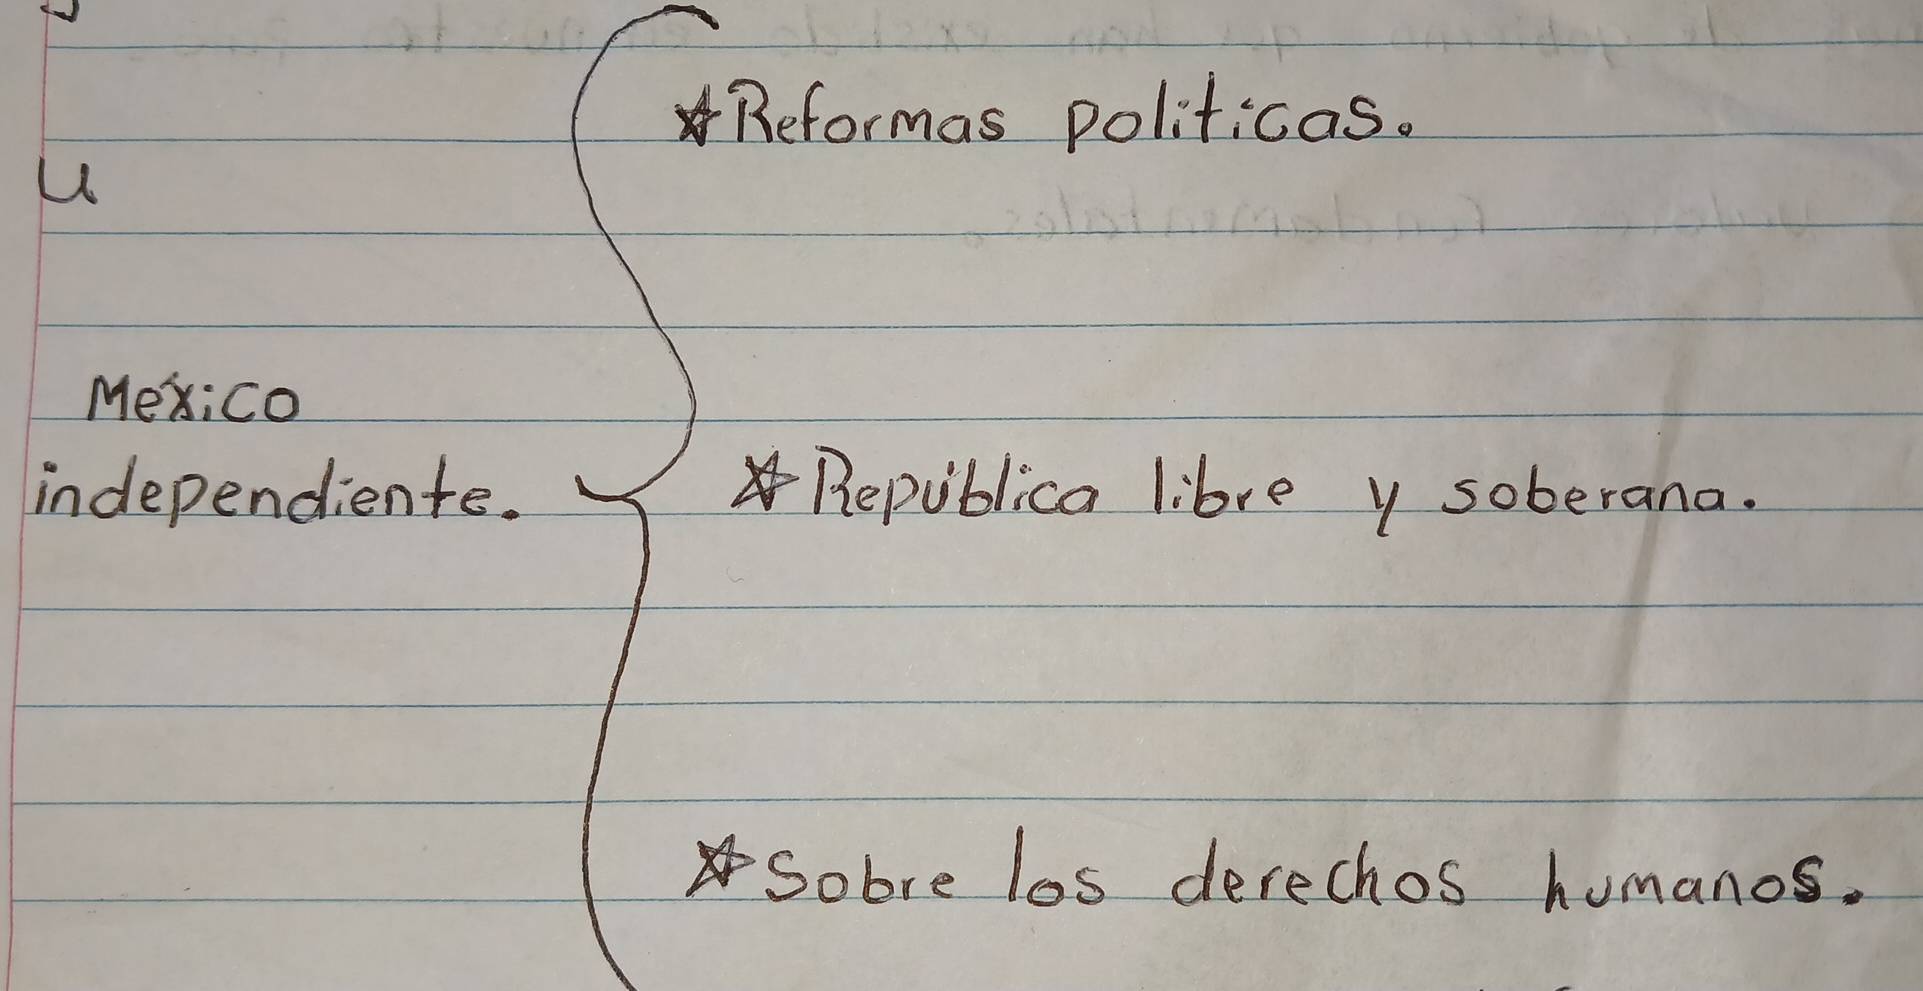 ☆Reformas politicas.
u
México
independiente.
☆República libre y soberana.
☆Sobre los derechos humanos.